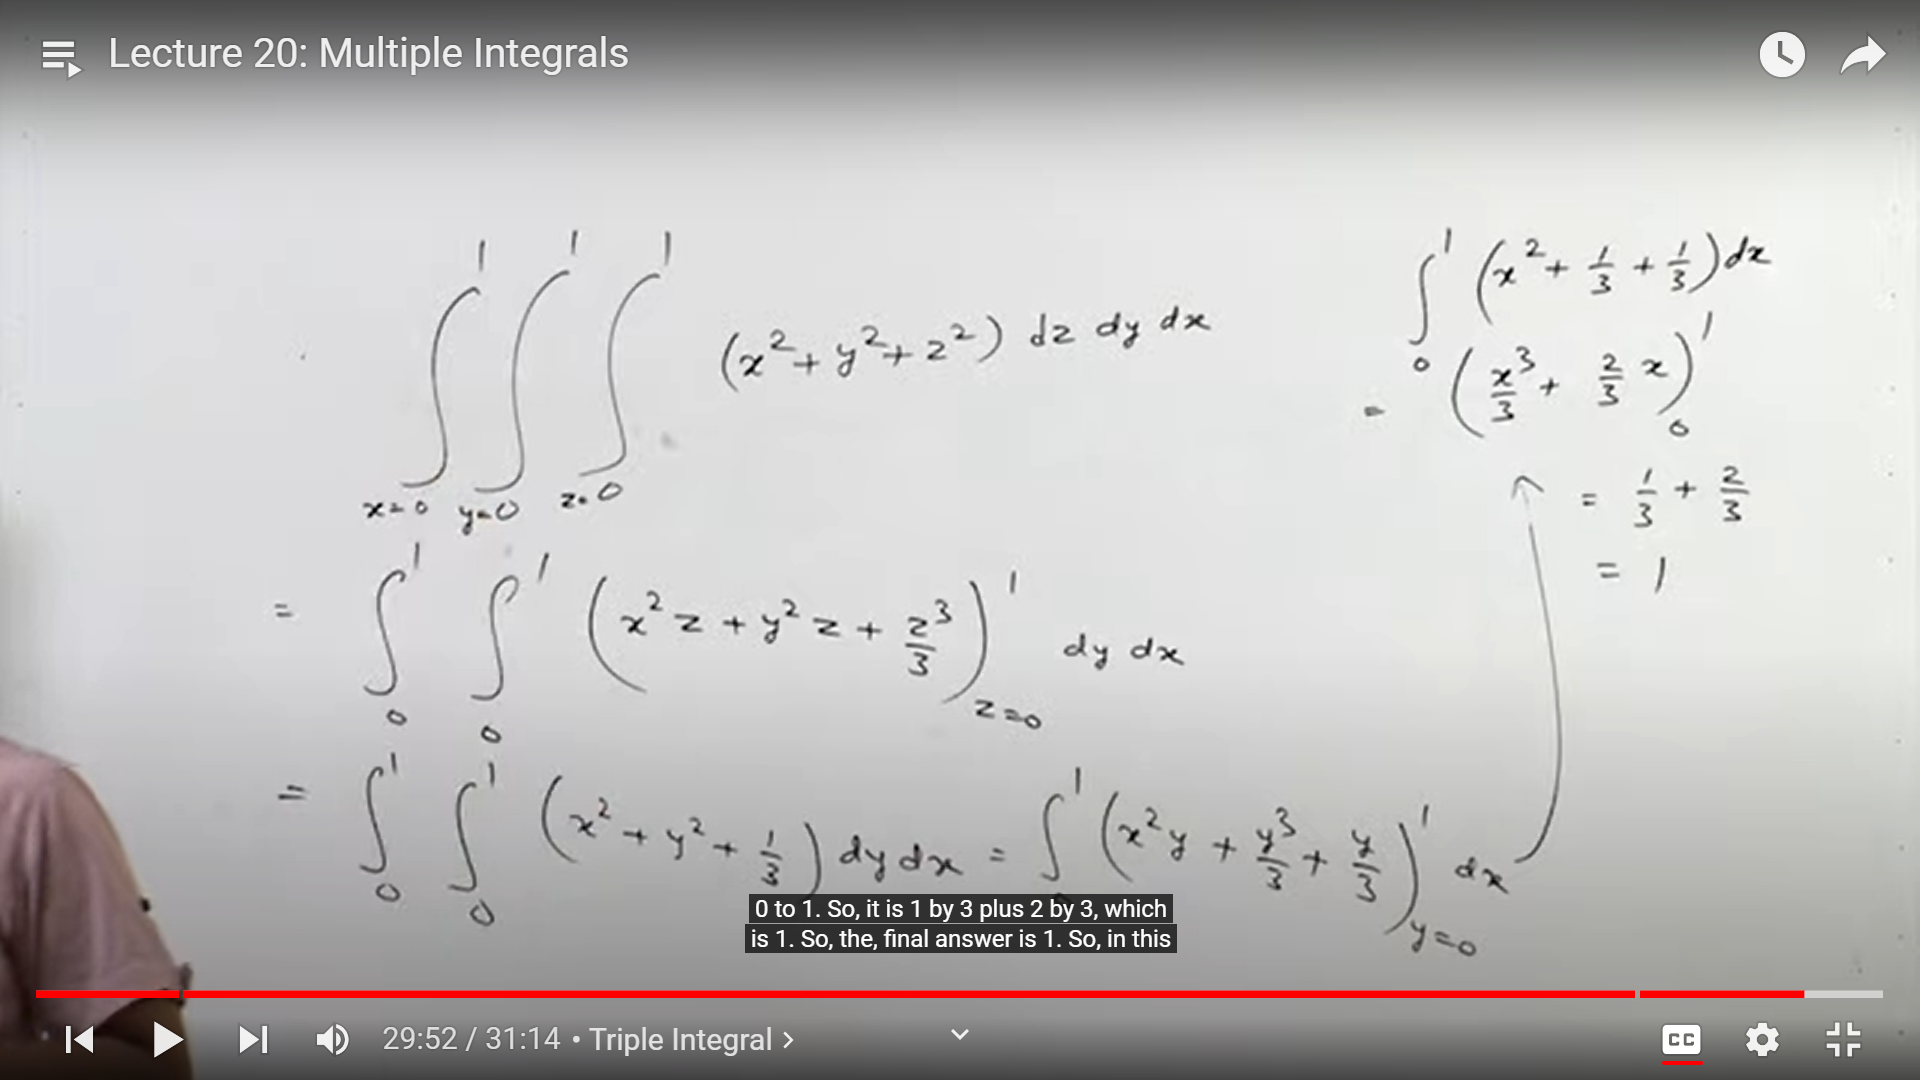 Lecture 20: Multiple Integrals
∫_{x=0}^{1} ∫_{y=0}^{1} ∫_{z=0}^{1} (x² + y² + z²) dz dy dx
= ∫_0^1 ∫_0^1 (x² z + y² z + z³/3)_{z=0}^{1} dy dx
= ∫_0^1 ∫_0^1 (x² + y² + 1/3) dy dx = ∫_0^1 (x² y + y³/3 + y/3)_{y=0}^{1} dx
∫_0^1 (x² + 1/3 + 1/3) dx
= (x³/3 + 2/3 x)_0^1
= 1/3 + 2/3
= 1
0 to 1. So, it is 1 by 3 plus 2 by 3, which
is 1. So, the, final answer is 1. So, in this
29:52 / 31:14 • Triple Integral >
CC